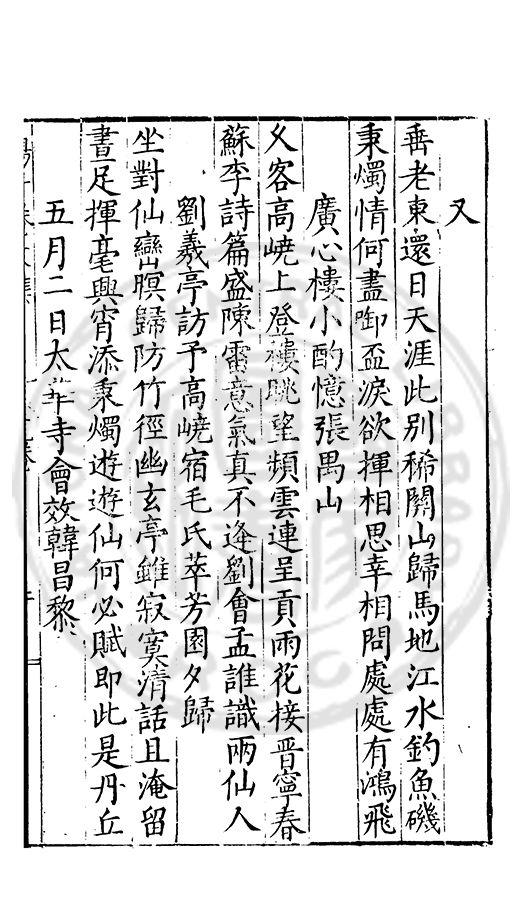 又
垂老東還日天涯此別稀關山歸馬地江水釣魚磯
秉燭情何盡啣盃淚欲揮相思幸相問處處有鴻飛
廣心樓小酌憶張禺山
久客高嶢上登樓眺望頻雲連呈貢雨花接晋寧春
蘇李詩篇盛陳雷意氣真不逢劉會孟誰識兩仙人
劉羲亭訪予高嶢宿毛氏萃芳園夕歸
坐對仙巒暝歸防竹徑幽玄亭雖寂寞清話且淹留
晝足揮毫興宵添秉燭遊遊仙何必賦即此是丹丘
五月二日太華寺會效韓昌黎